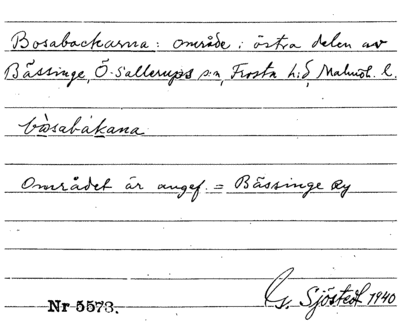 Bosabackarna: område i östra delen av
Bässinge, Ö. Sallerups sn, Frosta hd, Malmöh. l.
bòsabàkana
Området är angef. = Bässinge By
Nr 5573.
G. Sjöstedt 1940